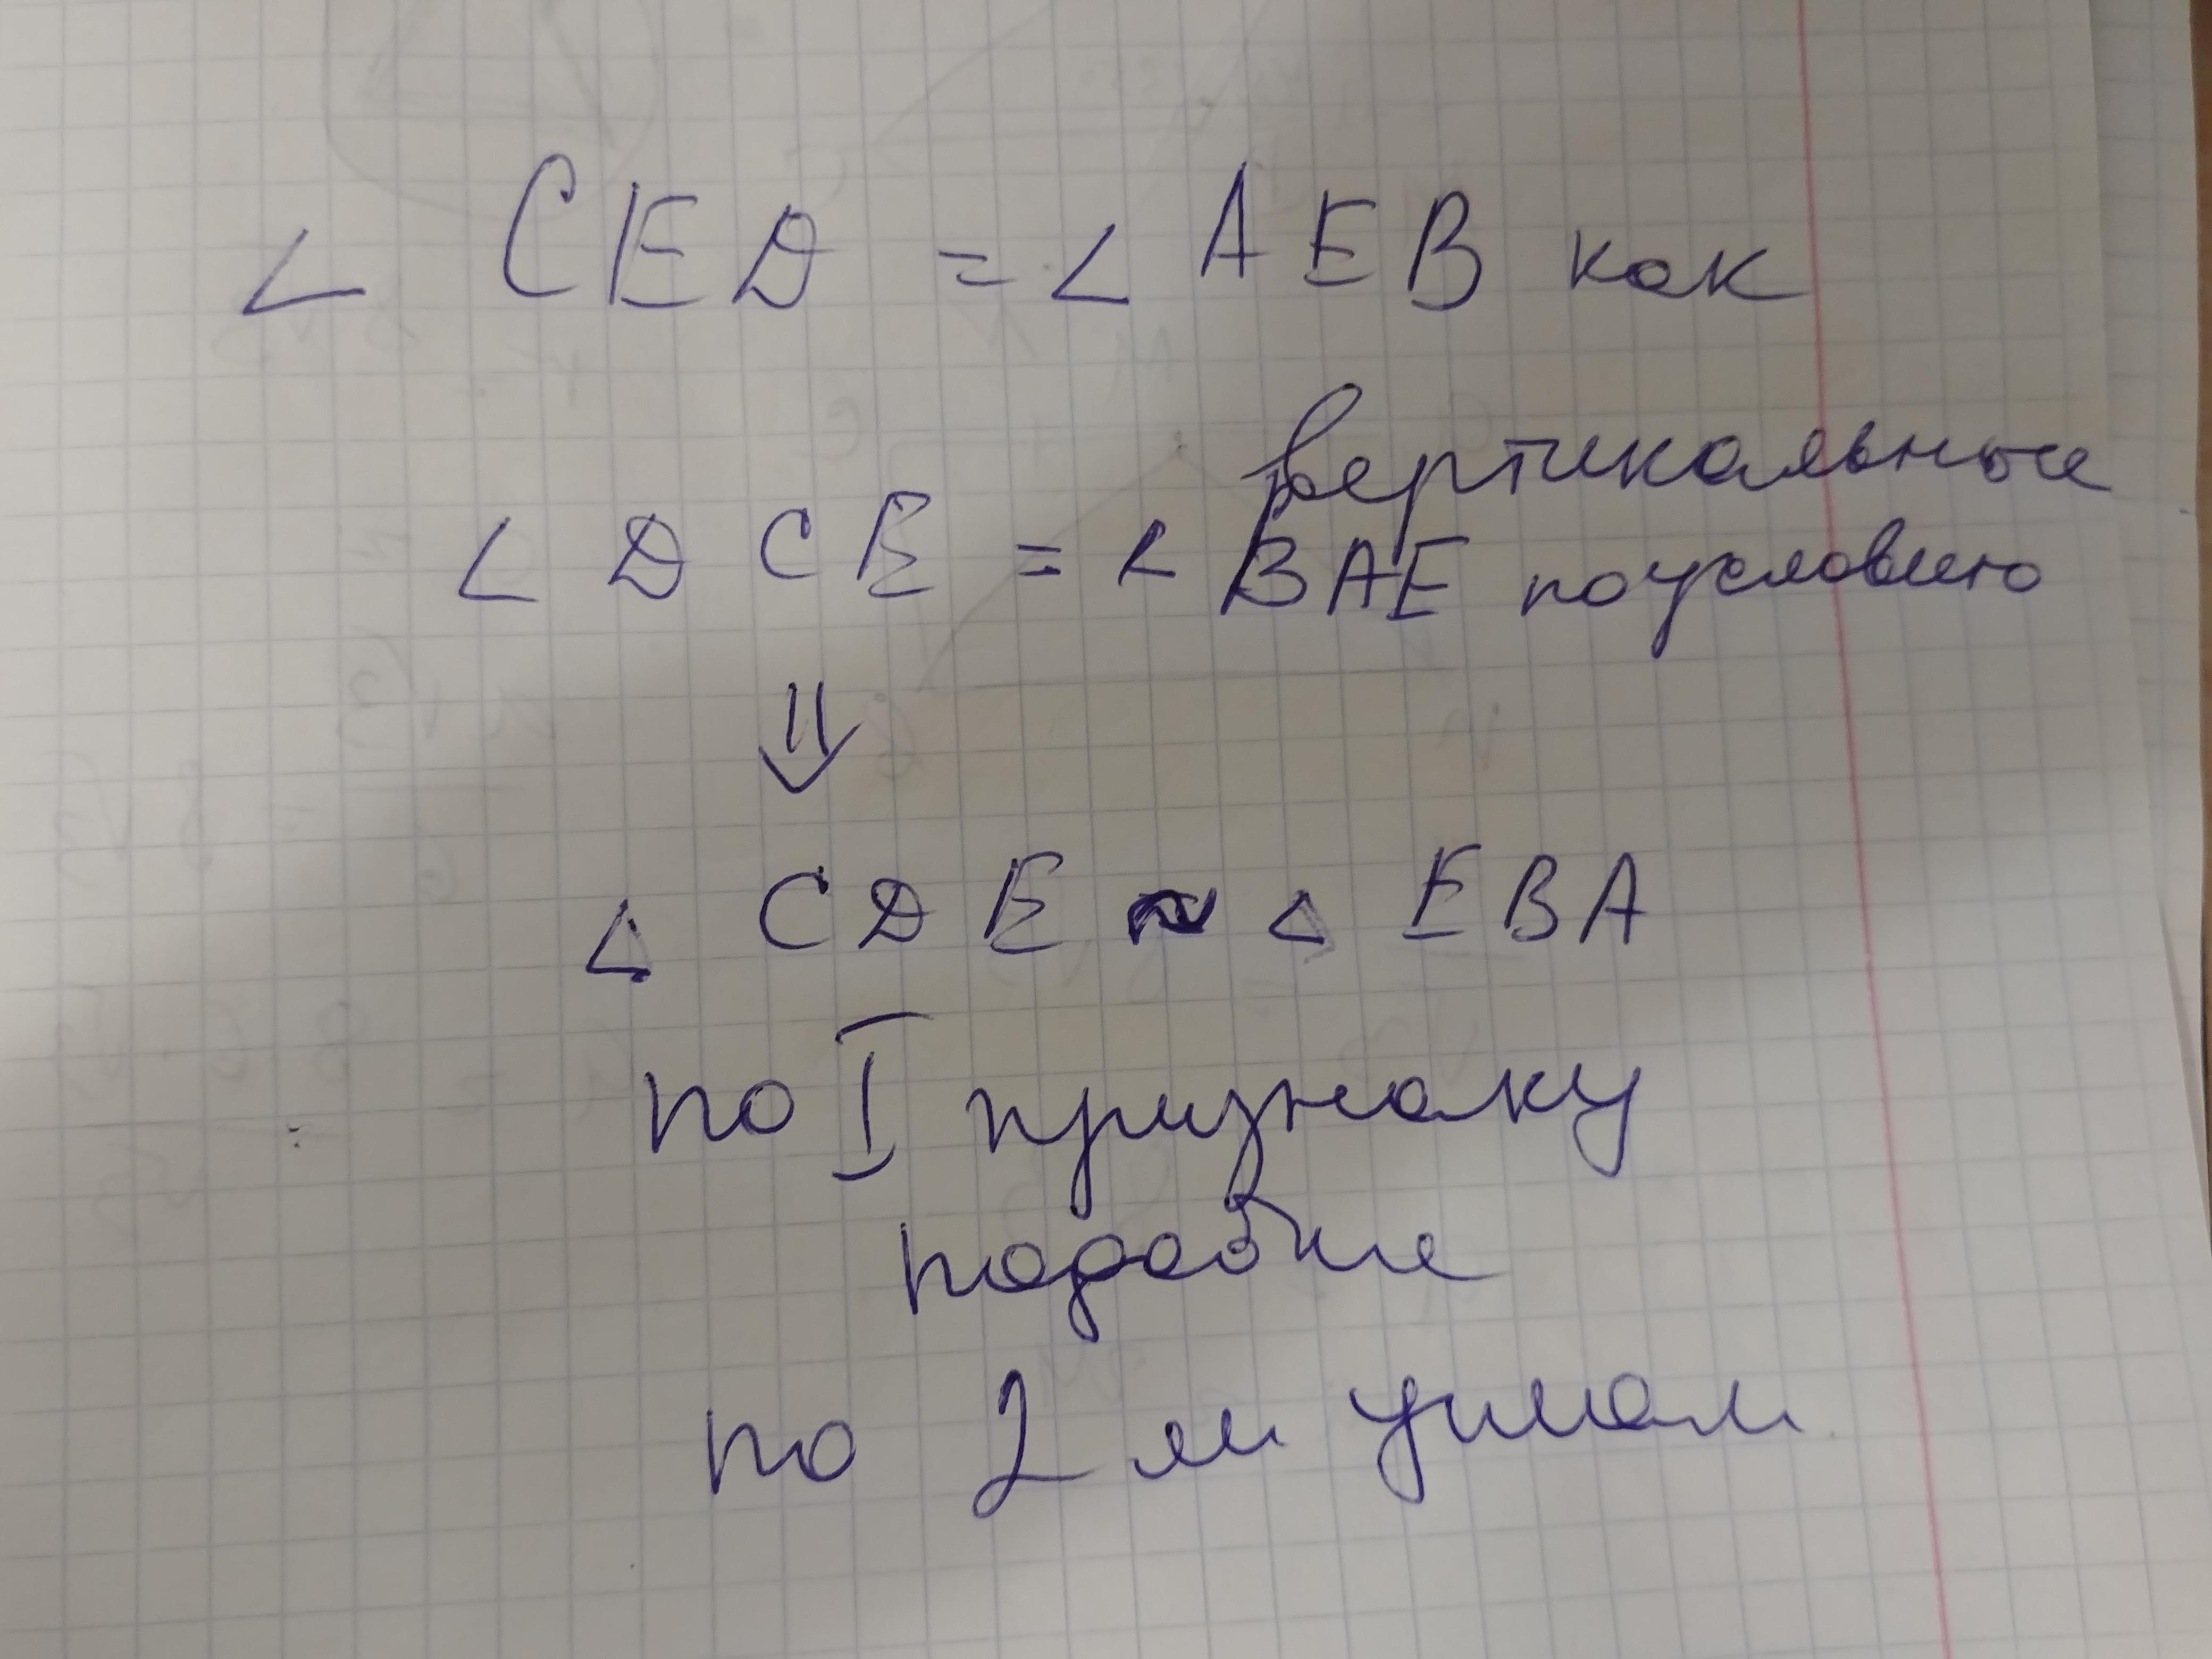 ∠ CED = ∠ AEB как
вертикальные
∠ DCE = ∠ BAE по условию
⇓
△ CDE ~ △ EBA
по I признаку
подобие
по 2 м углам